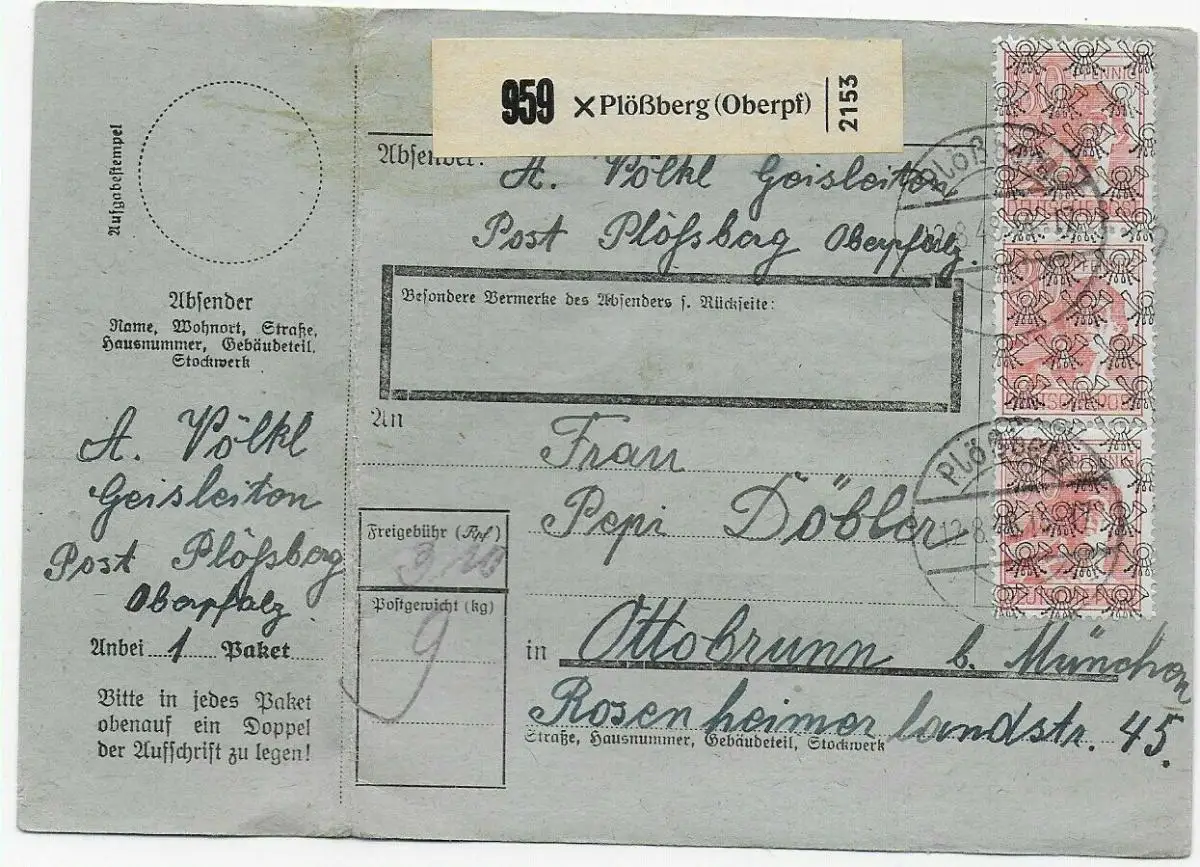 959 × Plößberg (Oberpf)
2153
Aufgabestempel
Absender
Name, Wohnort, Straße,
Hausnummer, Gebäudeteil,
Stockwerk
A. Völkl
Geisleiten
Post Plößberg
Oberpfalz
Anbei 1 Paket
Bitte in jedes Paket
obenauf ein Doppel
der Aufschrift zu legen!
Absender:
A. Völkl Geisleiten
Post Plößberg Oberpfalz.
Besondere Vermerke des Absenders s. Rückseite:
An
Frau
Pepi Döbler
Freigebühr (Rpf)
Postgewicht (kg)
9
in Ottobrunn b. München
Rosenheimerlandstr. 45.
Straße, Hausnummer, Gebäudeteil, Stockwerk
Plößberg
12.8.48
Plößberg
12.8.